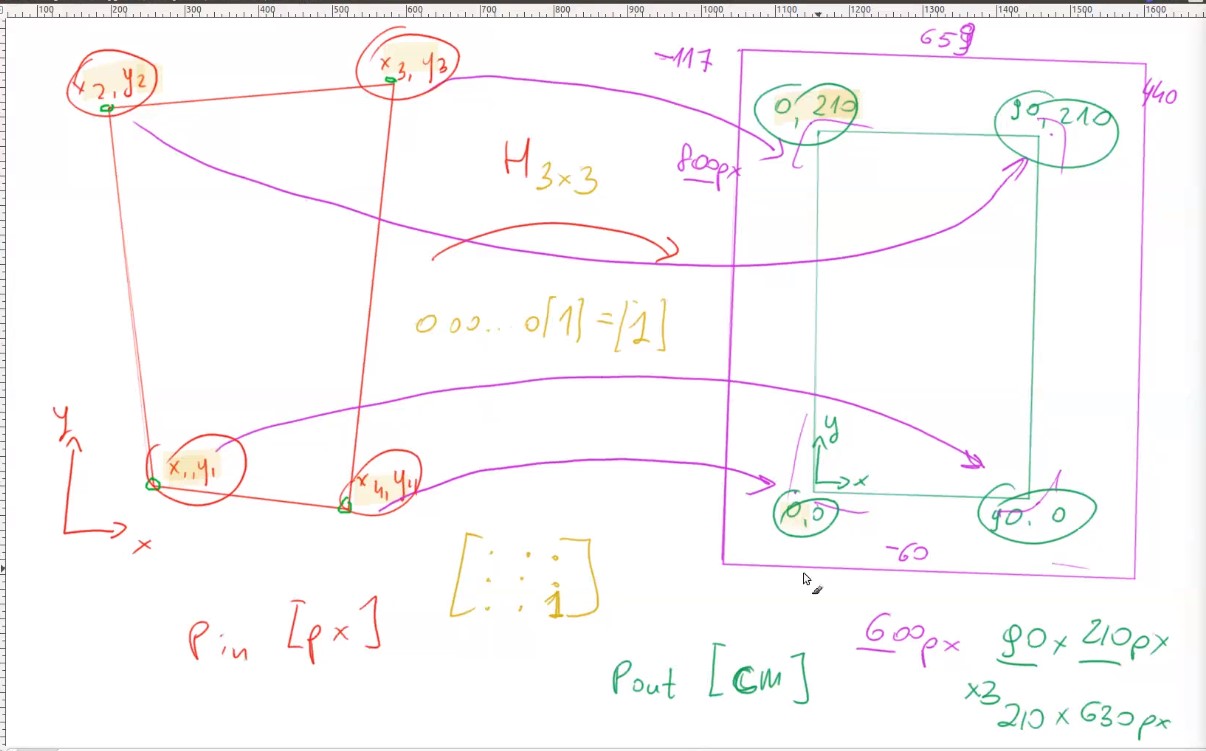 100 200 300 400 500 600 700 800 900 1000 1100 1200 1300 1400 1500 1600
659
-117
440
x2, y2
x3, y3
0, 210
90, 210
H3×3
800px
000... 0[1] = [1]
y
x
x1, y1
x4, y4
y
x
0,0
90. 0
-60
[ . . .
. . .
. . 1 ]
Pin [px]
Pout [cm]
600px
90 x 210px
x3
210 x 630px